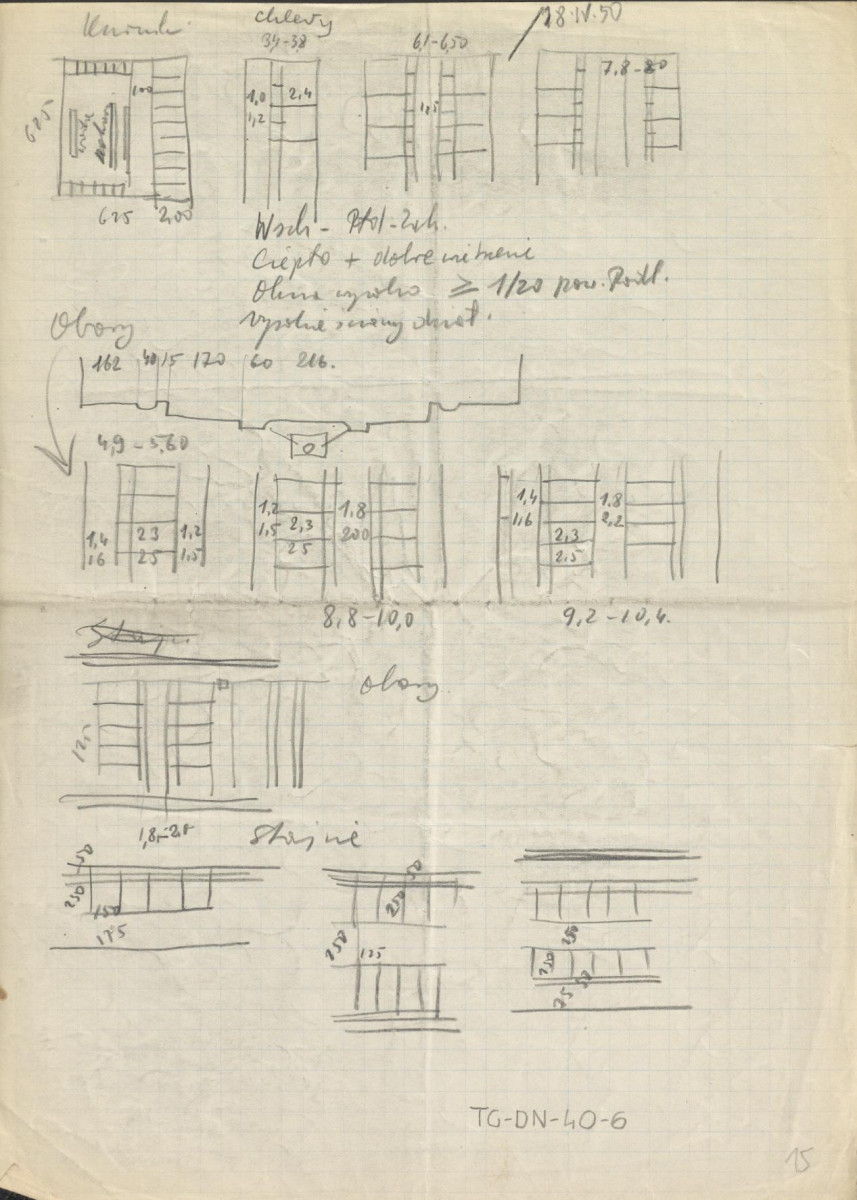 Kurnik
chlewy
3,4-3,8
6,1-6,50
/28.IV.50
7,8-80
100
625
625 200
1,0 2,4
1,2
1,25
Wsch - Płd-Zach.
Ciepło + dobre
Okna wysoko ≥ 1/20 pow. Podł.
wysokie
Obory
162 40 15 170 60 216.
4,9 - 5,60
1,4 23 1,2
16 25 1,5
1,2 1,8
1,5 2,3 200
25
1,4 1.8
1,6 2,2
2,3
2.5
8,8-10,0
9,2-10,4.
obory
1,8-2,8
Stajnie
50
250
150
175
50
250
250
125
250
250
50
75
TG-DN-40-6
15